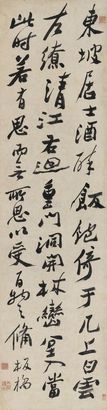 東坡居士酒醉飯飽倚于几上白雲
左繚清江右洄重門洞開林巒坌入當
此時若有思而無所思以受物之備 板橋